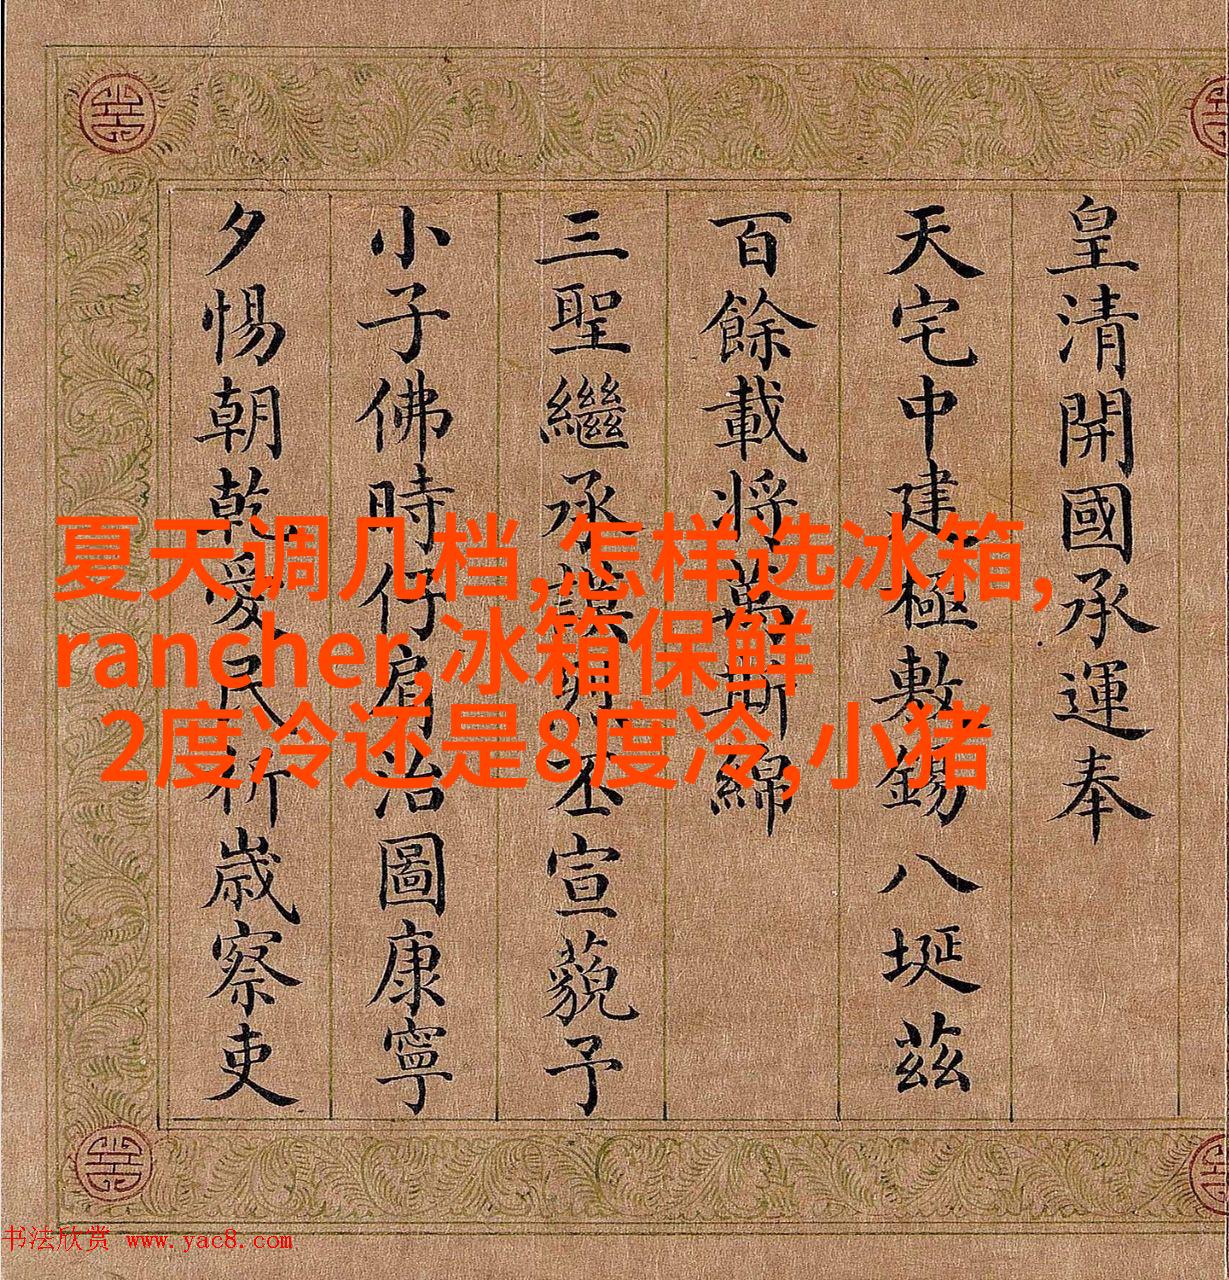 皇清開國承運奉
天宅中建極敷錫八埏茲
百餘載將萬斯綿
三聖繼承謨丕宣藐予
小子佛時仔肩治圖康寧
夕惕朝乾愛民祈歲察吏
夏天调几档,怎样选冰箱,
rancher,冰箱保鲜
2度冷还是8度冷,小猪
书法欣赏 www.yac8.com